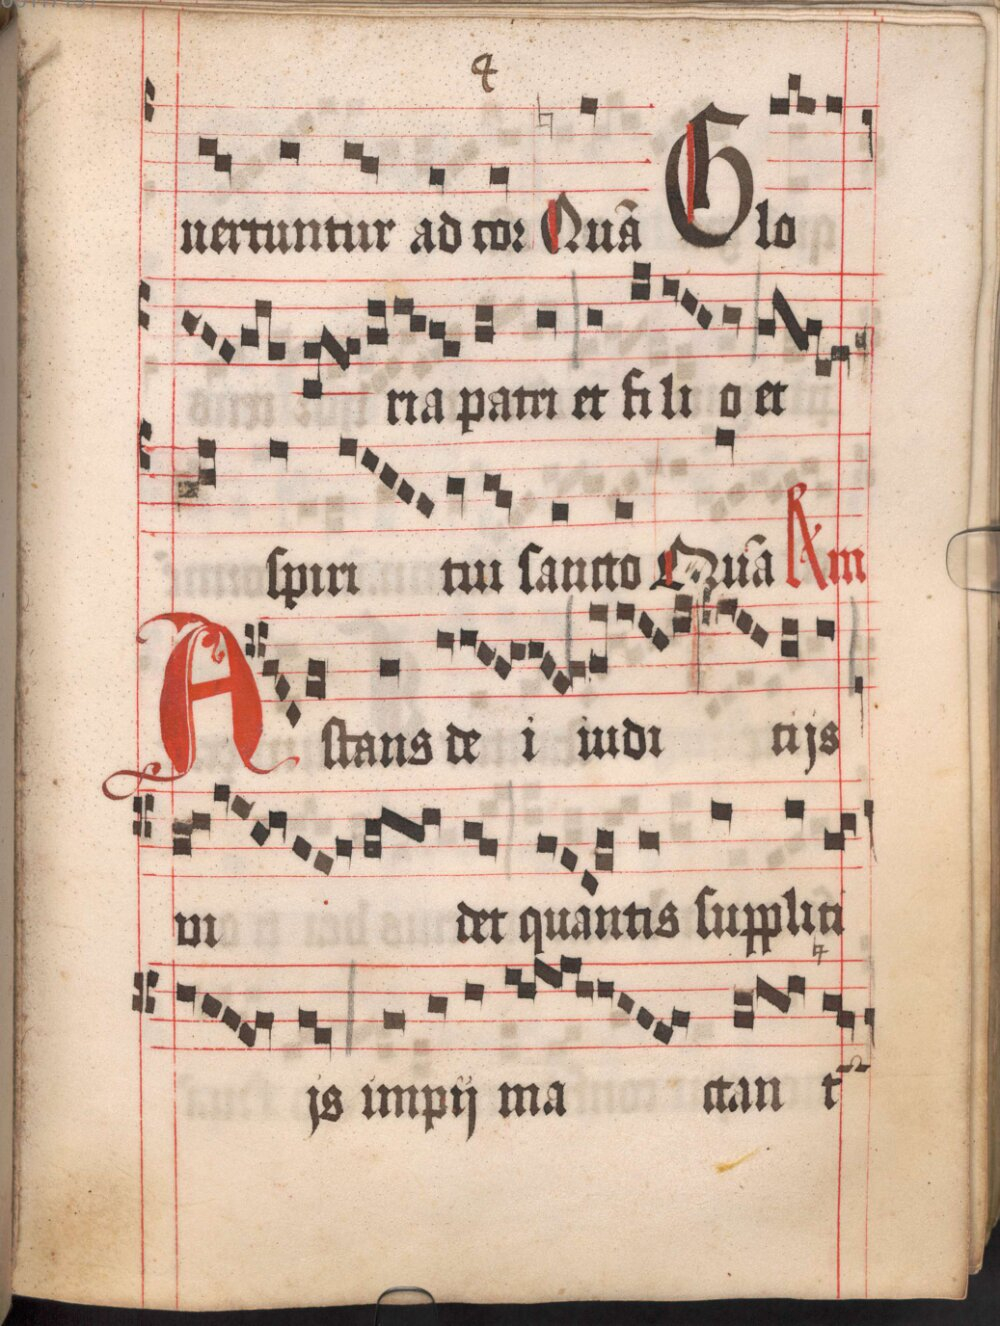 4
uertuntur ad cor Quā Glo
ria patri et fi li o et
spiri tui sancto Quā Am
Astans de i iudi cijs
vi det quantis suppliti
js impij ma ctan t